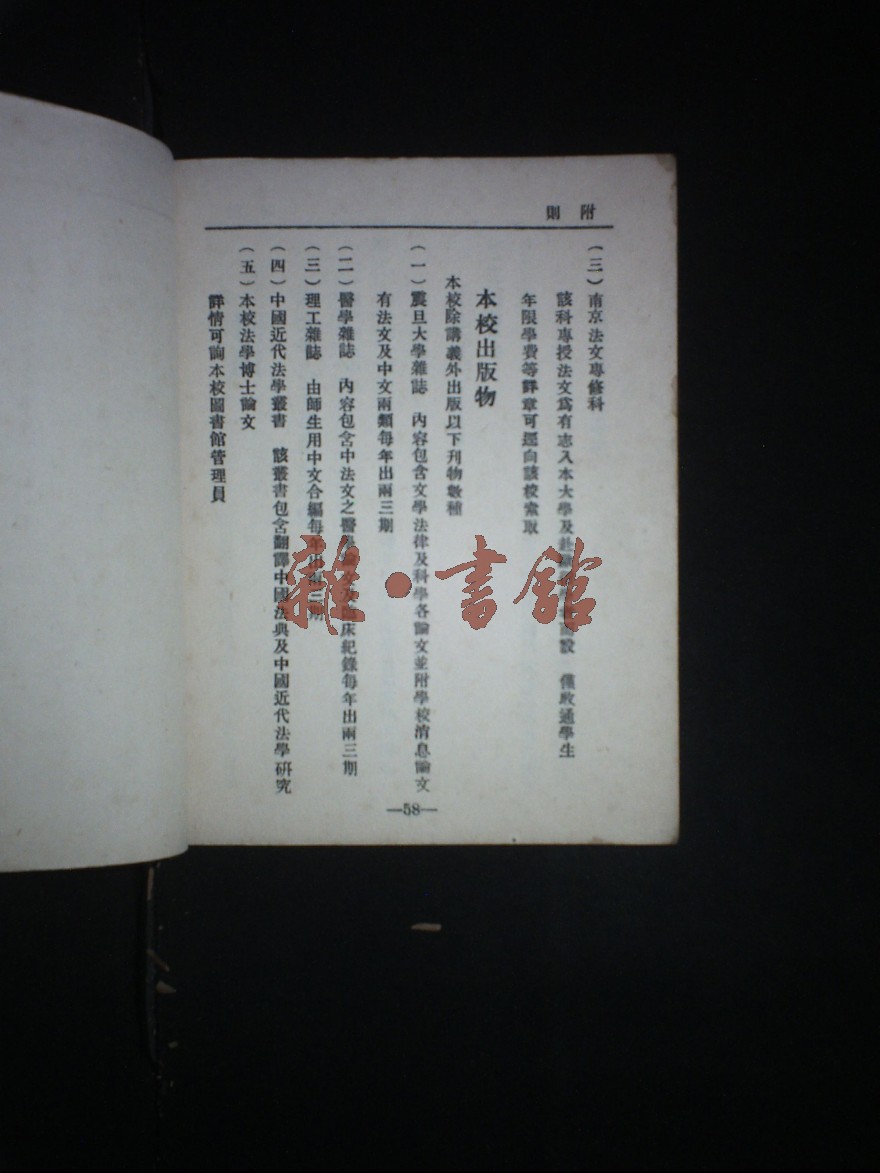 附則
（三）南京法文專修科
該科專授法文爲有志入本大學及赴 設 備政通學生
年限學費等詳章可逕向該校索取
本校出版物
本校除講義外出版以下刊物數種
（一）震旦大學雜誌 內容包含文學法律及科學各論文並附學校消息論文
有法文及中文兩類每年出兩三期
（二）醫學雜誌 內容包含中法文之醫學論文及臨床紀錄每年出兩三期
（三）理工雜誌 由師生用中文合編每年出兩三期
（四）中國近代法學叢書 該叢書包含翻譯中國法典及中國近代法學研究
（五）本校法學博士論文
詳情可詢本校圖書館管理員
—58—
雜·書館